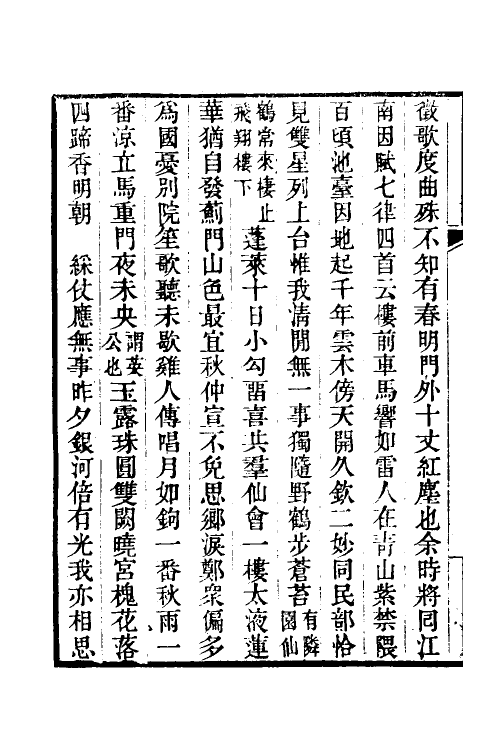 徵歌度曲殊不知有春明門外十丈紅塵也余時將同江
南因賦七律四首云樓前車馬響如雷人在青山紫禁隈
百頃池臺因地起千年雲木傍天開久欽二妙同民部恰
見雙星列上台惟我淸閒無一事獨隨野鶴步蒼苔有隣園仙
鶴常來棲止飛翔樓下蓬萊十日小勾畱喜共羣仙會一樓太液蓮
華猶自發薊門山色最宜秋仲宣不免思鄉淚鄭衆偏多
爲國憂別院笙歌聽未歇雞人傳唱月如鉤一番秋雨一
番涼立馬重門夜未央謂英公也玉露珠圓雙闕曉宮槐花落
四蹄香明朝綵仗應無事昨夕銀河倍有光我亦相思